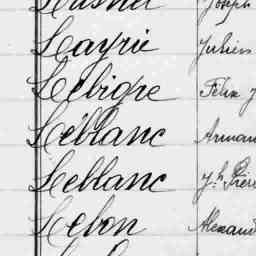 Layrie Julien
Lebigre Félix J
Leblanc Arman
Leblanc J.h Pierr
Lebon Alexand